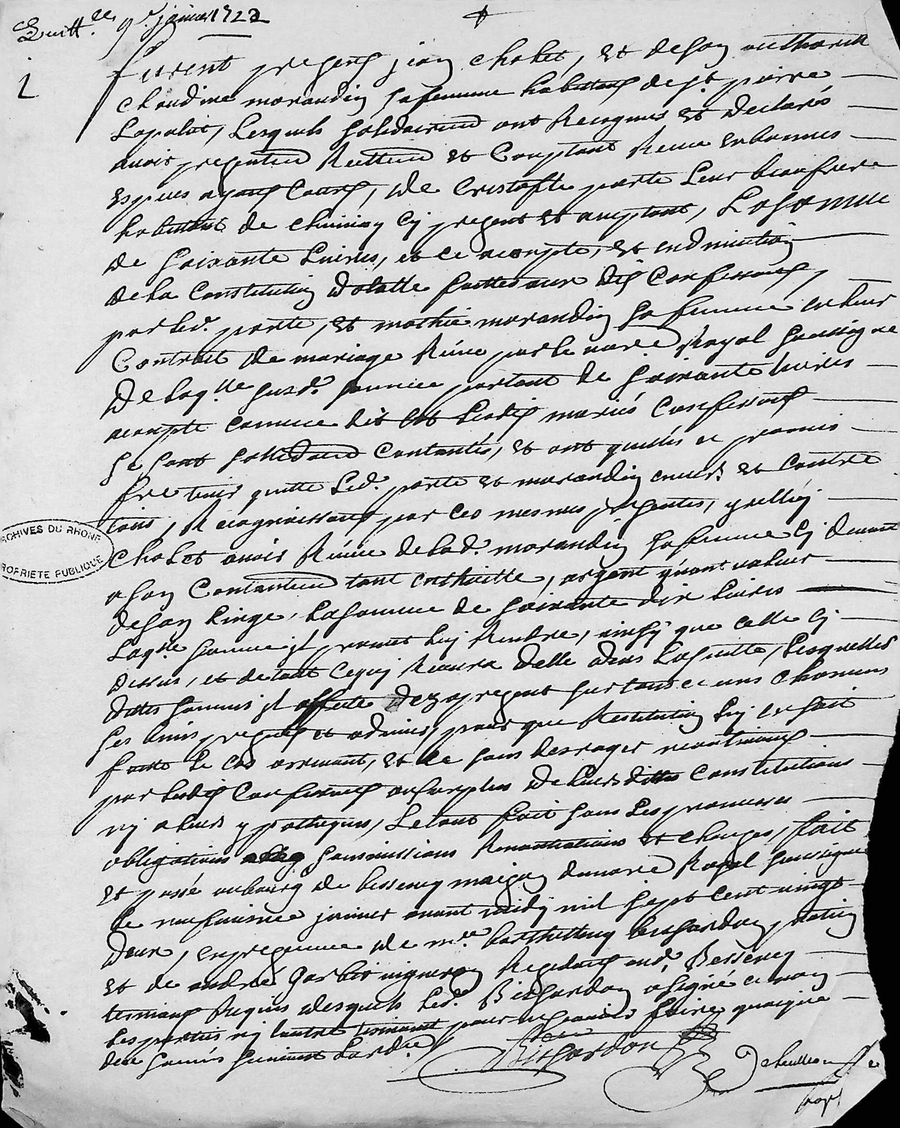 Quitt.ce 9e janvier 1722
furent presens jean chobet, et de son authorité
Claudine morandin sa femme habitans de st pierre
Lapalus, Lesquels solidairement ont Recognus et declarés
avoir presentement Reellement et Comptant Receu en bonnes
Especes ayans Cours, de Cristofle porte Leur beaufrere
habitant de chivinay Cy present et aceptant, La somme
de soixante Livres, et ce acompte, et en diminution
de la Constitution dotalle faitte aux dis Confessans
par led. porte, et mathie morandin sa femme en leur
Contrat de mariage Receu par le nore Royal soussigné
De laqlle susd. somme partant de soixante livres
acompte comme dit est Lesdis mariés Confessans
se sont solidairemt Contantés, et ont quittés et promis
fre tenir quitte Led. porte et morandin envers et Contre
tous, Recognoissant par ces mesmes presentes, ycelluy
Chobet avoir Receu de lad. morandin sa femme Cy devant
a son Contantement tant en argent valeur
de son Linge, La somme de soixante dix Livres
Laqlle somme il promet luy Rendre, ainsy que celle Cy
Dessus, et de tout ce quy Recevra delle dans La suitte, Lesquelles
dittes sommes il affecte dez apresent sur tous et uns Chacuns
ses biens presens et advenir, pour que Restitution luy en soit
faitte le cas arrivant, et ce sans desroger
par Lesdis Confessans au surplus de leurs dittes Constitutions
ny a leurs ypotheques, Le tout fait sous Les promesses
obligations soumissions Renontiations et Clauses, fait
et passé au bourg de bessenay maison du nore Royal soussigné
Le neufvieme janvier avant midy mil sept cent vingt
deux, en presence de me barthellemy bissardon praticien
et de andré vigneron Residans aud. Bessenay
temoins Requis desquels Led. Bissardon a signé et non
Les parties ny lautre temoint pour ne sçavoir faire quoique
deue sommés suivant Lordre
Bissardon
ARCHIVES DU RHONE
PROPRIETE PUBLIQUE